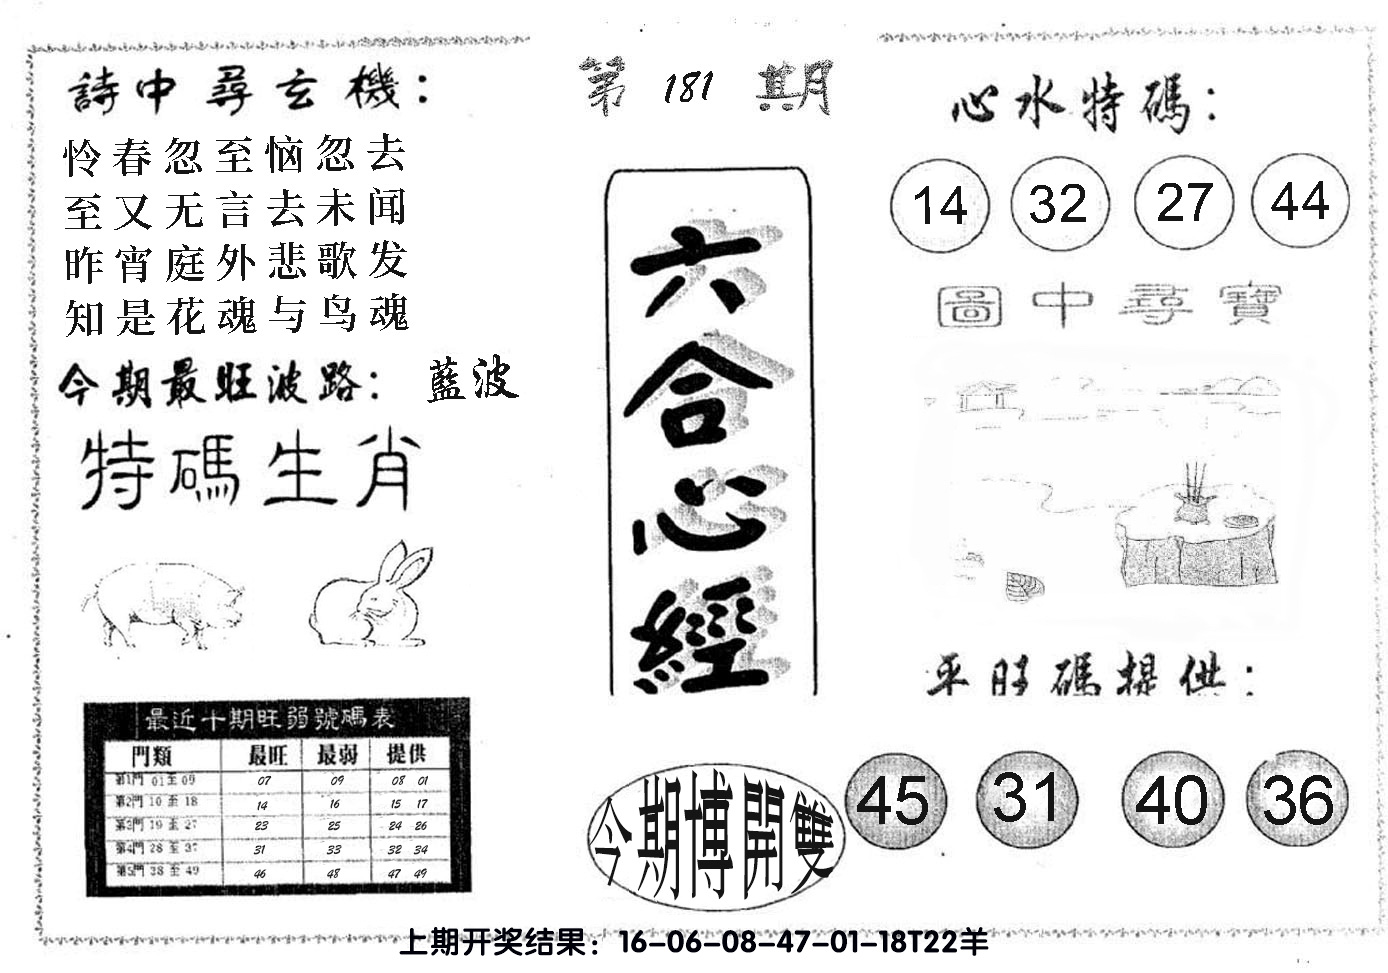 詩中尋玄機：
怜春忽至恼忽去
至又无言去未闻
昨宵庭外悲歌发
知是花魂与鸟魂
今期最旺波路：藍波
特碼生肖
最近十期旺弱號碼表
門類 最旺 最弱 提供
第1門 01至09 07 09 08 01
第2門 10至18 14 16 15 17
第3門 19至27 23 25 24 26
第4門 28至37 31 33 32 34
第5門 38至49 46 48 47 49
第181期
六合心經
今期博開雙
心水特碼：
14 32 27 44
圖中尋寶
平旺碼提供：
45 31 40 36
上期开奖结果：16-06-08-47-01-18T22羊